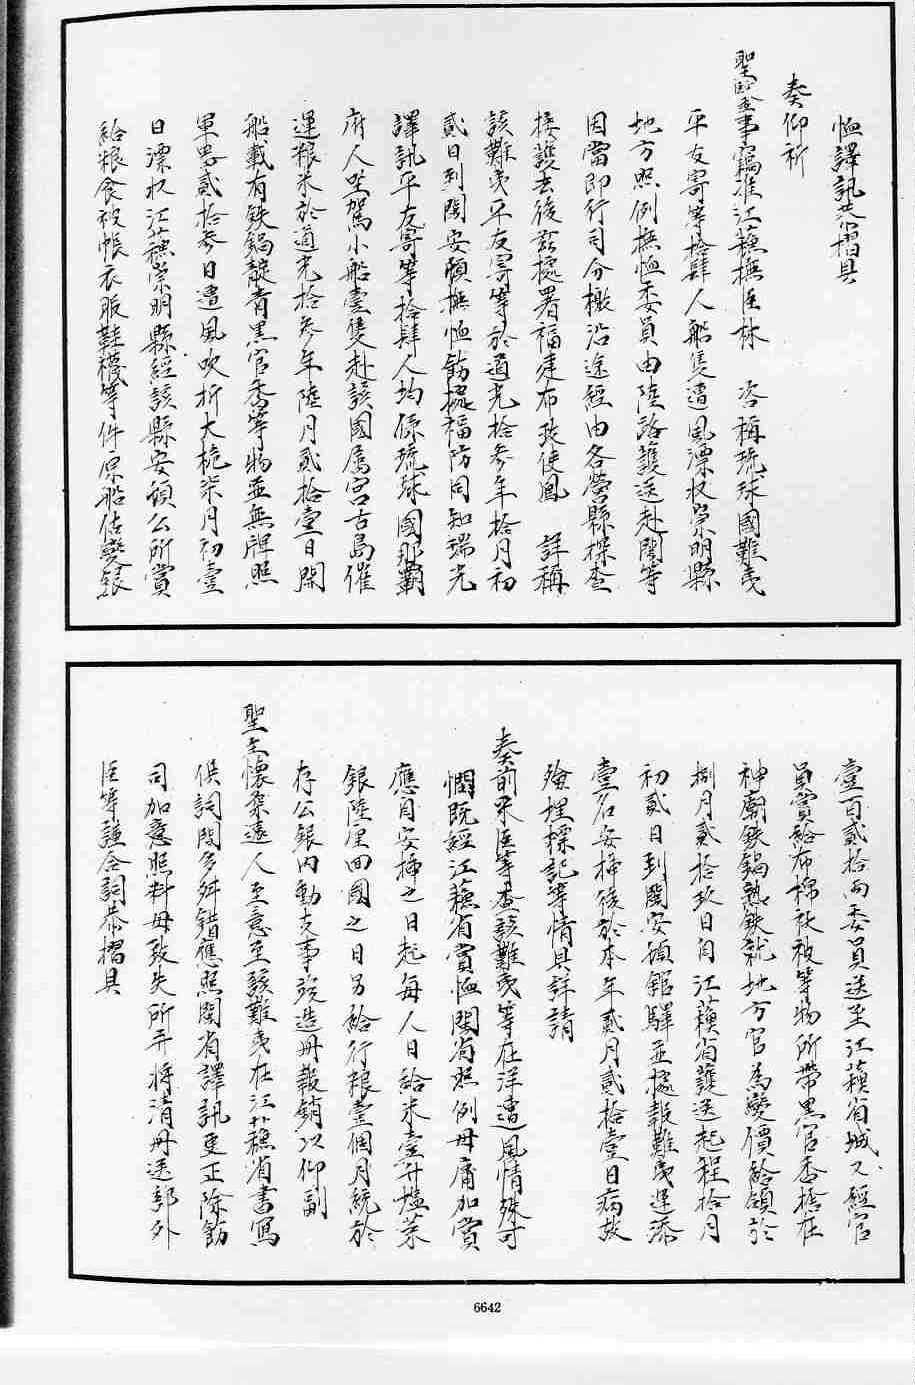 恤譯訊恭摺具
奏仰祈
聖鑒事竊准江蘇撫臣林　咨稱琉球國難夷
平友寄等拾肆人船隻遭風漂收崇明縣
地方照例撫恤委員由陸路護送赴閩等
因當即行司分檄沿途經由各營縣探查
接護去後茲據署福建布政使鳳　詳稱
該難夷平友寄等於道光拾參年拾月初
貳日到閩安頓撫恤飭據福防同知瑞光
譯訊平友寄等拾肆人均係琉球國那霸
府人坐駕小船壹隻赴該國屬宮古島催
運粮米於道光拾參年陸月貳拾壹日開
船載有鉄鍋靛青黑官香等物並無牌照
軍器貳拾參日遭風吹折大桅柒月初壹
日漂收江蘇崇明縣經該縣安頓公所賞
給粮食被帳衣服鞋襪等件原船估變銀
壹百貳拾両委員送至江蘇省城又經官
員賞給布棉衣被等物所帶黑官香捨在
神廟鉄鍋熟鉄就地方官為變價給領於
捌月貳拾玖日自江蘇省護送起程拾月
初貳日到閩安頓館驛並據報難夷運添
壹名安揷後於本年貳月貳拾壹日病故
殮埋標記等情具詳請
奏前來臣等查該難夷等在洋遭風情殊可
憫既經江蘇省賞恤閩省照例毋庸加賞
應自安揷之日起每人日給米壹升塩菜
銀陸厘回國之日另給行粮壹個月統於
存公銀內動支事竣造冊報銷以仰副
聖主懷柔遠人至意至該難夷在江蘇省書寫
供詞間多舛錯應照閩省譯訊更正除飭
司加意照料毋致失所并将清冊送部外
臣等謹合詞恭摺具
6642